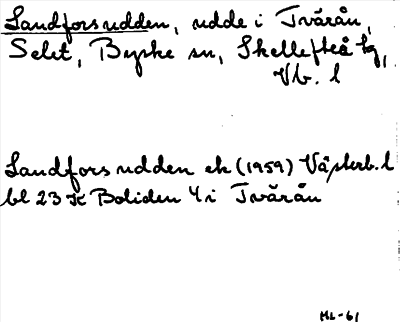 Sandforsudden, udde i Tvärån,
Selet, Byske sn, Skellefteå tg,
Vb. l
Sandforsudden ek (1959) Västerb. l
bl 23 K Boliden 4 i Tvärån
ML-61